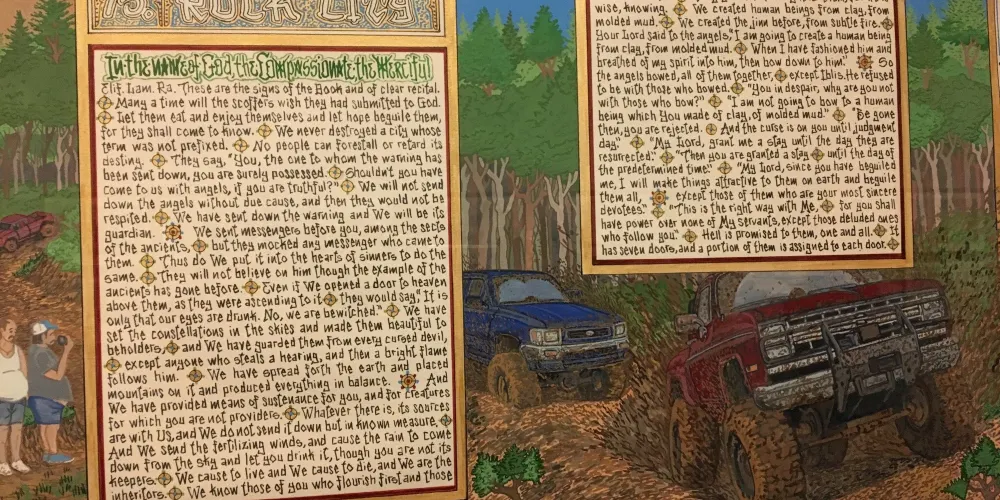 15. ROCK CITY
In the name of God the Compassionate the Merciful
Elif. Lam. Ra. These are the signs of the Book and of clear recital.
Many a time will the scoffers wish they had submitted to God.
Let them eat and enjoy themselves and let hope beguile them,
for they shall come to know. We never destroyed a city whose
term was not prefixed. No people can forestall or retard its
destiny. They say, "You, the one to whom the warning has
been sent down, you are surely possessed. Shouldn't you have
come to us with angels, if you are truthful?" We will not send
down the angels without due cause, and then they would not be
respited. We have sent down the warning and We will be its
guardian. We sent messengers before you, among the sects
of the ancients, but they mocked any messenger who came to
them. Thus do We put it into the hearts of sinners to do the
same. They will not believe on him though the example of the
ancients has gone before. Even if We opened a door to heaven
above them, as they were ascending to it they would say, "It is
only that our eyes are drunk. No, we are bewitched." We have
set the constellations in the skies and made them beautiful to
beholders, and We have guarded them from every cursed devil,
except anyone who steals a hearing, and then a bright flame
follows him. We have spread forth the earth and placed
mountains on it and produced everything in balance. And
We have provided means of sustenance for you, and for creatures
for which you are not providers. Whatever there is, its sources
are with Us, and We do not send it down but in known measure.
And We send the fertilizing winds, and cause the rain to come
down from the sky and let you drink it, though you are not its
keepers. We cause to live and We cause to die, and We are the
inheritors. We know those of you who flourish first and those
wise, knowing. We created human beings from clay, from
molded mud. We created the jinn before, from subtle fire.
Your Lord said to the angels, "I am going to create a human being
from clay, from molded mud. When I have fashioned him and
breathed of my spirit into him, then bow down to him." So
the angels bowed, all of them together, except Iblis. He refused
to be with those who bowed. "You in despair, why are you not
with those who bow?" "I am not going to bow to a human
being which You made of clay, of molded mud." "Be gone
then, you are rejected. And the curse is on you until judgment
day." "My Lord, grant me a stay until the day they are
resurrected." "Then you are granted a stay until the day of
the predetermined time." "My Lord, since you have beguiled
me, I will make things attractive to them on earth and beguile
them all, except those of them who are your most sincere
devotees." "This is the right way with Me, for you shall
have power over none of My servants, except those deluded ones
who follow you." Hell is promised to them, one and all. It
has seven doors, and a portion of them is assigned to each door.